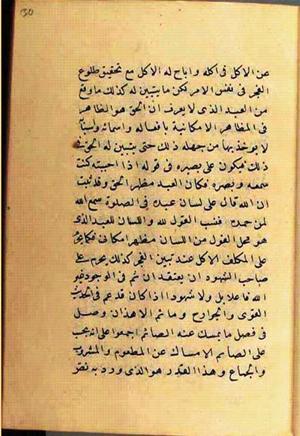 عن الاكل فى اكله واباح له الاكل مع تحقيق طلوع
الفجر فى نفس الامر لكن ما يتبين له كذلك ما وقع
من العبد الذى لا يعرف ان الحق هو الظاهر
فى المظاهر الامكانية بافعاله واسمائه
لا يؤخذ بها من جهله ذلك حتى يتبين له الحق
ذلك فيكون على بصيره فى قوله اذا احببته كنت
سمعه وبصره فكان العبد مظهر الحق وقد ثبت
ان الله قال على لسان عبده فى الصلوة سمع الله
لمن حمده فنسب القول لله واللسان للعبد الذى
هو محل القول من اللسان مظهر امكانى فكما يحرم
على المكلف الاكل عند تبين الفجر كذلك يحرم على
صاحب الشهود ان يعتقد ان ثم فى الوجود غير
الله فاعلا بل ولا مشهودا اذا كان قد عم فى الحديث
القوى والجوارح وما ثم الا هذان وصــل
فى فصل ما يمسك عنه الصائم اجمعوا على انه يجب
على الصائم الامساك عن المطعوم والمشروب
والجماع وهذا القدر هو الذى ورد به نص